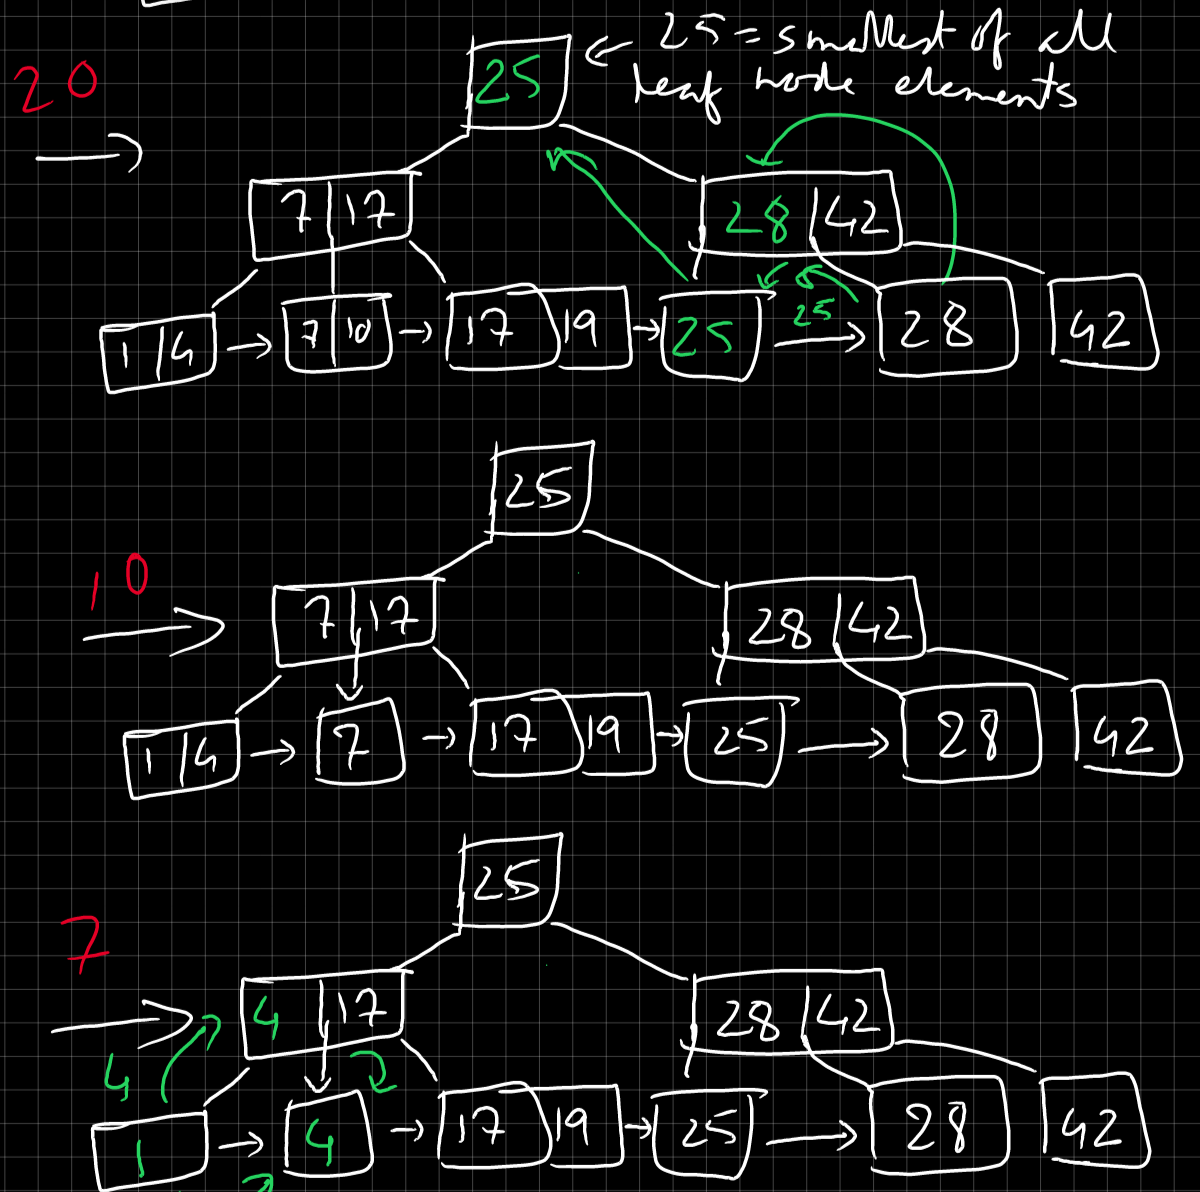 25 = smallest of all
leaf node elements
20
25
7 17
28 42
1 4
7 10
17 19
25
25
28
42
25
10
7 17
28 42
1 4
7
17 19
25
28
42
25
7
4 17
28 42
4
1
4
17 19
25
28
42